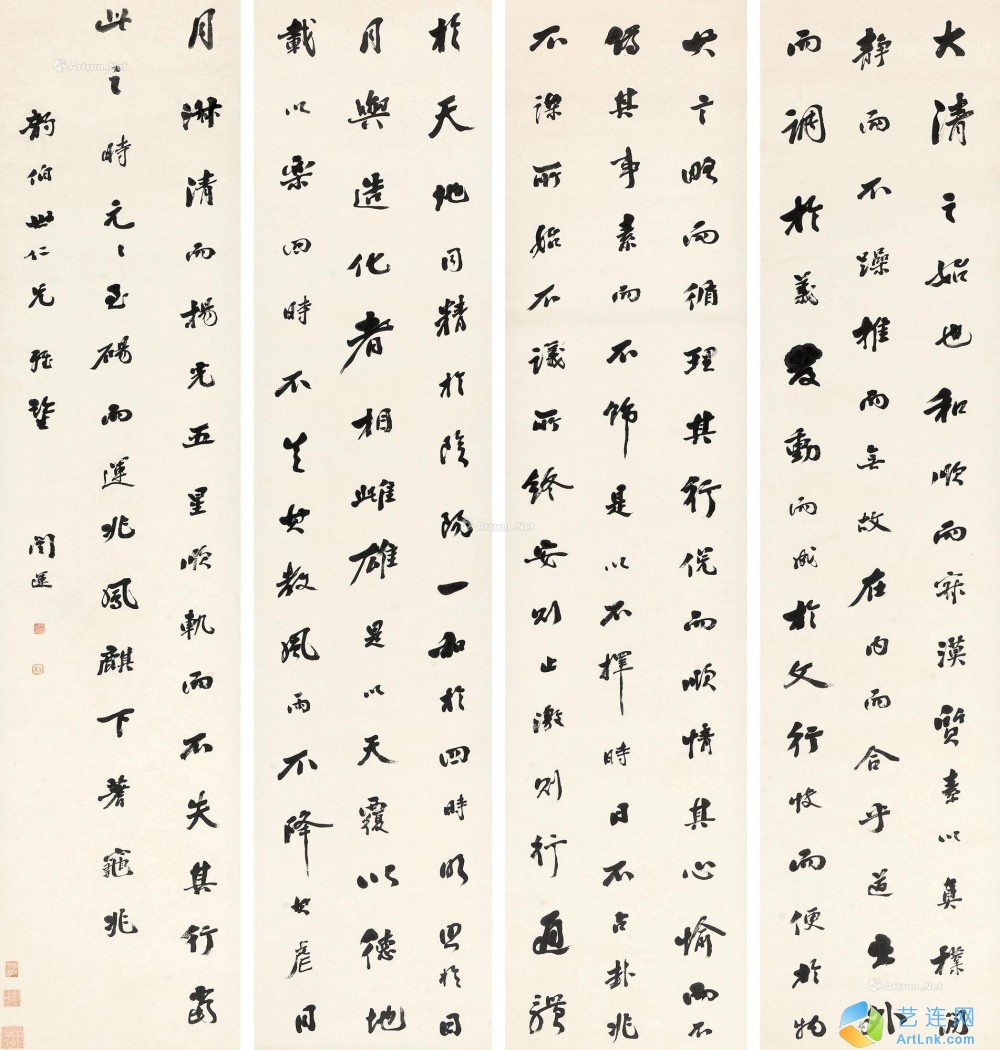 大清之始也和順而寂漠質素以真樸閑
靜而不躁推而無故在内而合乎道出外
而調於義發動而成於文行快而便於物
其言略而循理其行侻而順情其心愉而不
偽其事素而不飾是以不擇時日不占卦兆
不謀所始不議所終安則止激則行通體
於天地同精於陰陽一和於四時明照於日
月與造化者相雌雄是以天覆以德地
載以樂四時不失其敘風雨不降其虐日
月淋清而揚光五星順軌而不失其行當
此之時元〻至碭而運兆鳳麒下蓍龜兆
韵伯世仁兄雅鑒
闓運
Artron.Net
Artron.Net
Artron.Net
艺连网
ArtLnk.com